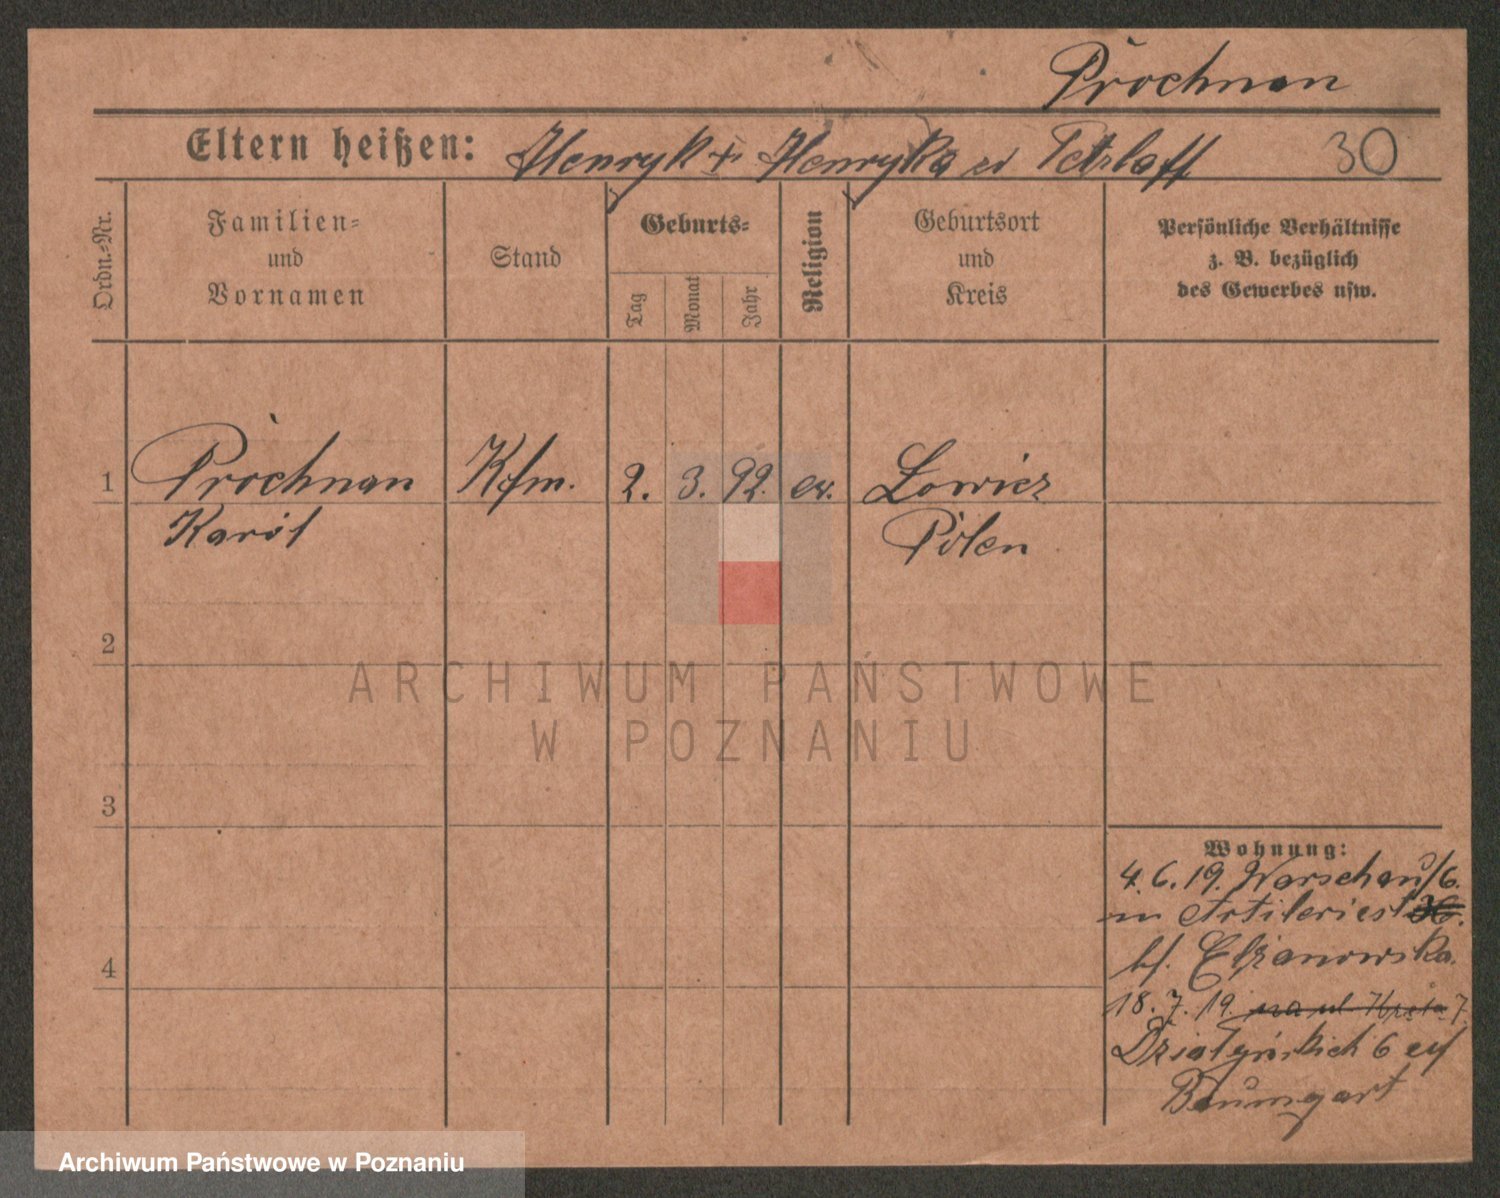 Prochnau
Eltern heißen: Henryk + Henryka zd Tetzlaff 30
Ordn.-Nr.
Familien-
und
Vornamen
Stand
Geburts-
Tag
Monat
Jahr
Religion
Geburtsort
und
Kreis
Persönliche Verhältnisse
z. B. bezüglich
des Gewerbes usw.
1 Prochnau Kfm. 2. 3. 92. ev. Lowicz
Karol Polen
2
3
4
ARCHIWUM PAŃSTWOWE
W POZNANIU
Wohnung:
4.6.19. Warschau/6.
Artileriest
bf. Elzanowska.
18.7.19. na ul 7
Działyńskich 6
Baumgart
Archiwum Państwowe w Poznaniu